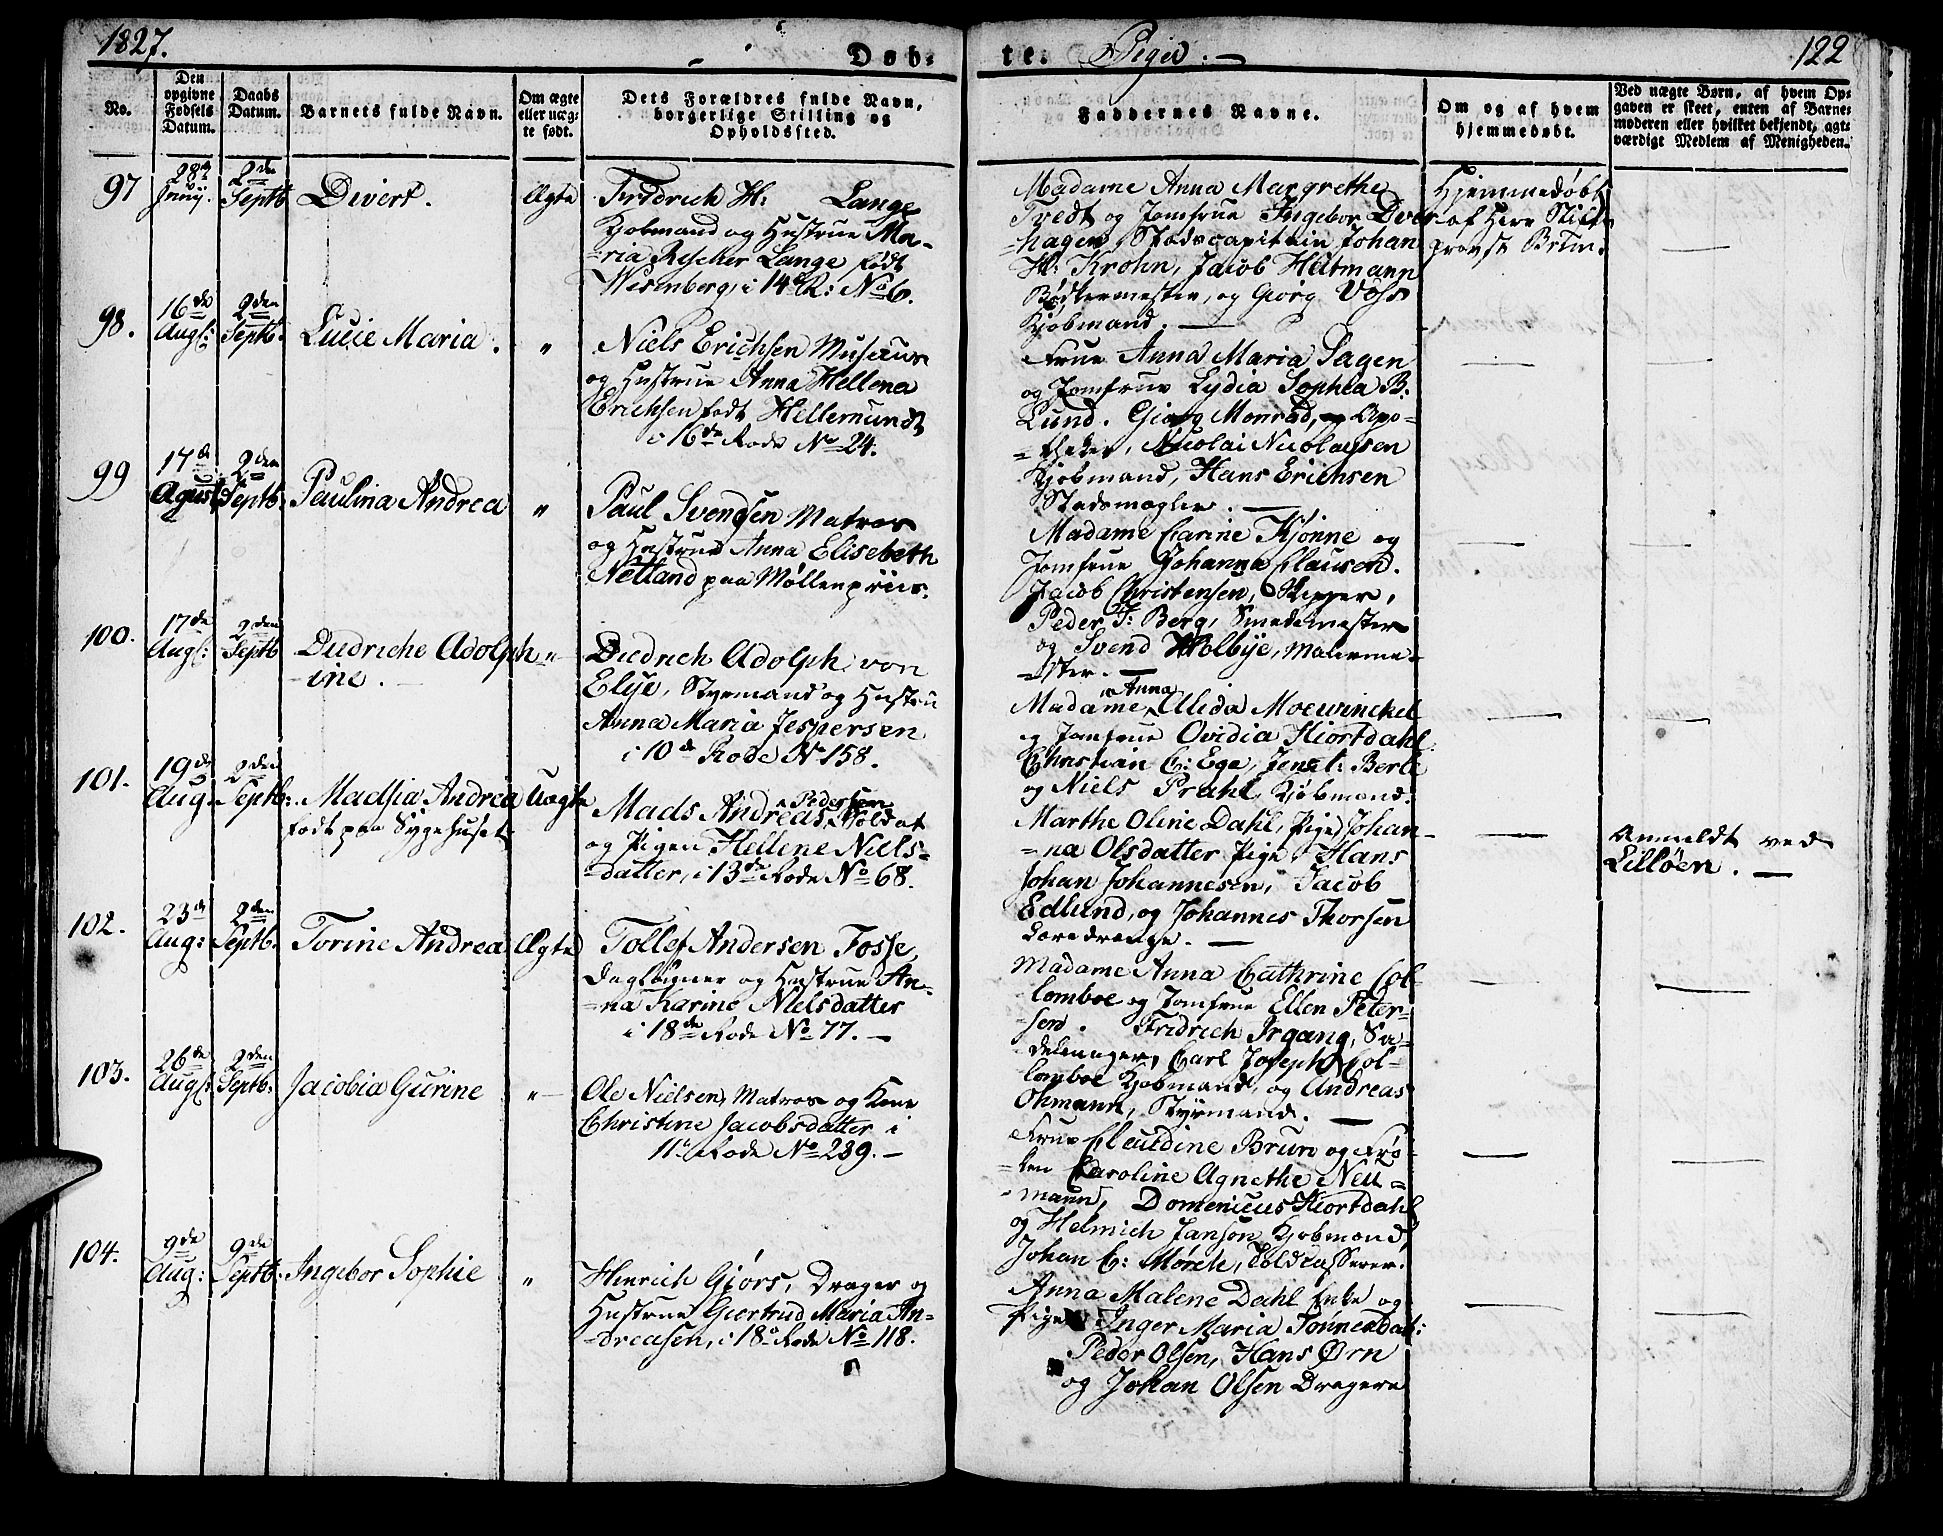 1827.
Døb-
te. Piger.
122
No.
Den opgivne Fødsels Datum.
Daabs Datum.
Barnets fulde Navn.
Om ægte eller uægte født.
Dets Forældres fulde Navn, borgerlige Stilling og Opholdssted.
Faddernes Navne.
Om og af hvem hjemmedøbt.
Ved uægte Børn, af hvem Opgaven er skeet, enten af Barnemoderen eller hvilket bekjendt, agtværdigt Medlem af Menigheden.
97
28de
2den Septb
Divert.
Ægte
Fridrich H: Lange
Kjøbmand og Hustrue Ma-
ria Rescher Lange født
Wesenberg, i 14de R: No 6.
Madame Anna Margrethe
Tvedt og Jomfrue Ingebor Dver-
hagen, Stadscapitain Johan
H: Krohn, Jacob Heltmann
Bødkermester, og Georg Voss
Kjøbmand. —
Hjemmedøbt
af Herr Stifts-
provst Brun.
98.
16de Augs:
2den Septb.
Lucie Maria.
"
Niels Erichsen Musæus
og Hustrue Anna Hellena
Erichsen født Hellemundt
i 16de Rode No 24.
Frue Anna Maria Sagen
og Jomfrue Lydia Sophia B:
Lund. Georg Monrad, Apo-
theker, Nicolai Nicolaysen
Kjøbmand, Hans Erichsen
Stadsmægler. —
99
17de Agust
2den Septb.
Paulina Andrea
"
Paul Svendsen Matros
og Hustrue Anna Elisebeth
Netland paa Møllenpriis.
Madame Carine Kjønne og
Jomfrue Johanna Clausen.
Jacob Christensen, Skipper,
Peder J: Berg, Smedemester
og Svend Holbye, Malerme-
ster. —
100.
17de Augs:
2den Septb
Didriche Adolph-
ine. —
"
Diedrich Adolph von
Elye, Styrmand og Hustru
Anna Maria Jespersen
i 10de Rode No 158.
Madame Anna Alida Mowinckel
og Jomfrue Ovidia Hiortdahl
Christian C: Ege, Berle
og Niels Prahl, Kjøbmænd.
101.
19de Aug.
2den Septb:
Madsia Andrea
født paa Sygehuset.
Uægte
Mads Andreas Pedersen Soldat
og Pigen Hellene Niels-
datter, i 13de Rode No 68.
Marthe Oline Dahl, Pige, Johan-
na Olsdatter Pige, Hans
Johan Johannesen, Jacob
Edlund, og Johannes Thorsen
Læredrenge. —
Anmeldt ved
Lilløen. —
102.
23de Aug:
2den Septb.
Torine Andrea
Ægte
Tollef Andersen Fosse,
Dagleigner og Hustrue An-
na Karine Nielsdatter
i 18de Rode No 77. —
Madame Anna Cathrine Col-
lomboe og Jomfrue Ellen Peter-
sen. Fridrich Irgang, Sa-
delmager, Carl Joseph Col-
lomboe Kjøbmand, og Andreas
Ohmann, Styrmand. —
103.
26de Augs:
2den Septb:
Jacobia Gurine
"
Ole Nielsen, Matros og Kone
Christine Jacobsdatter i
11te Rode No 289. —
Frue Claudine Brun og Frø-
ken Caroline Agnethe Neu-
mann, Domenicus Hiortdahl
og Helmich Janson Kjøbmænd,
Johan C: Mørch,
104.
9de Aug:
9de Septb.
Ingebor Sophie
"
Hinrich Gjørs, Drager og
Hustrue Giertrud Maria An-
dreasen, i 18de Rode No 118.
Anna Malene Dahl Enke og
Pigen Inger Maria Tønnesdat:
Peder Olsen, Hans Ørn
og Johan Olsen Dragere